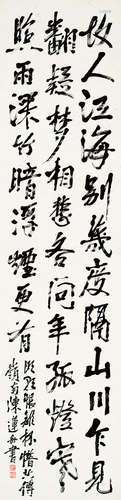 故人江海別幾度隔山川乍見
翻疑夢相悲各問年孤燈寒
照雨深竹暗浮煙更有
明朝恨離杯惜共傳
嶺南陳 書